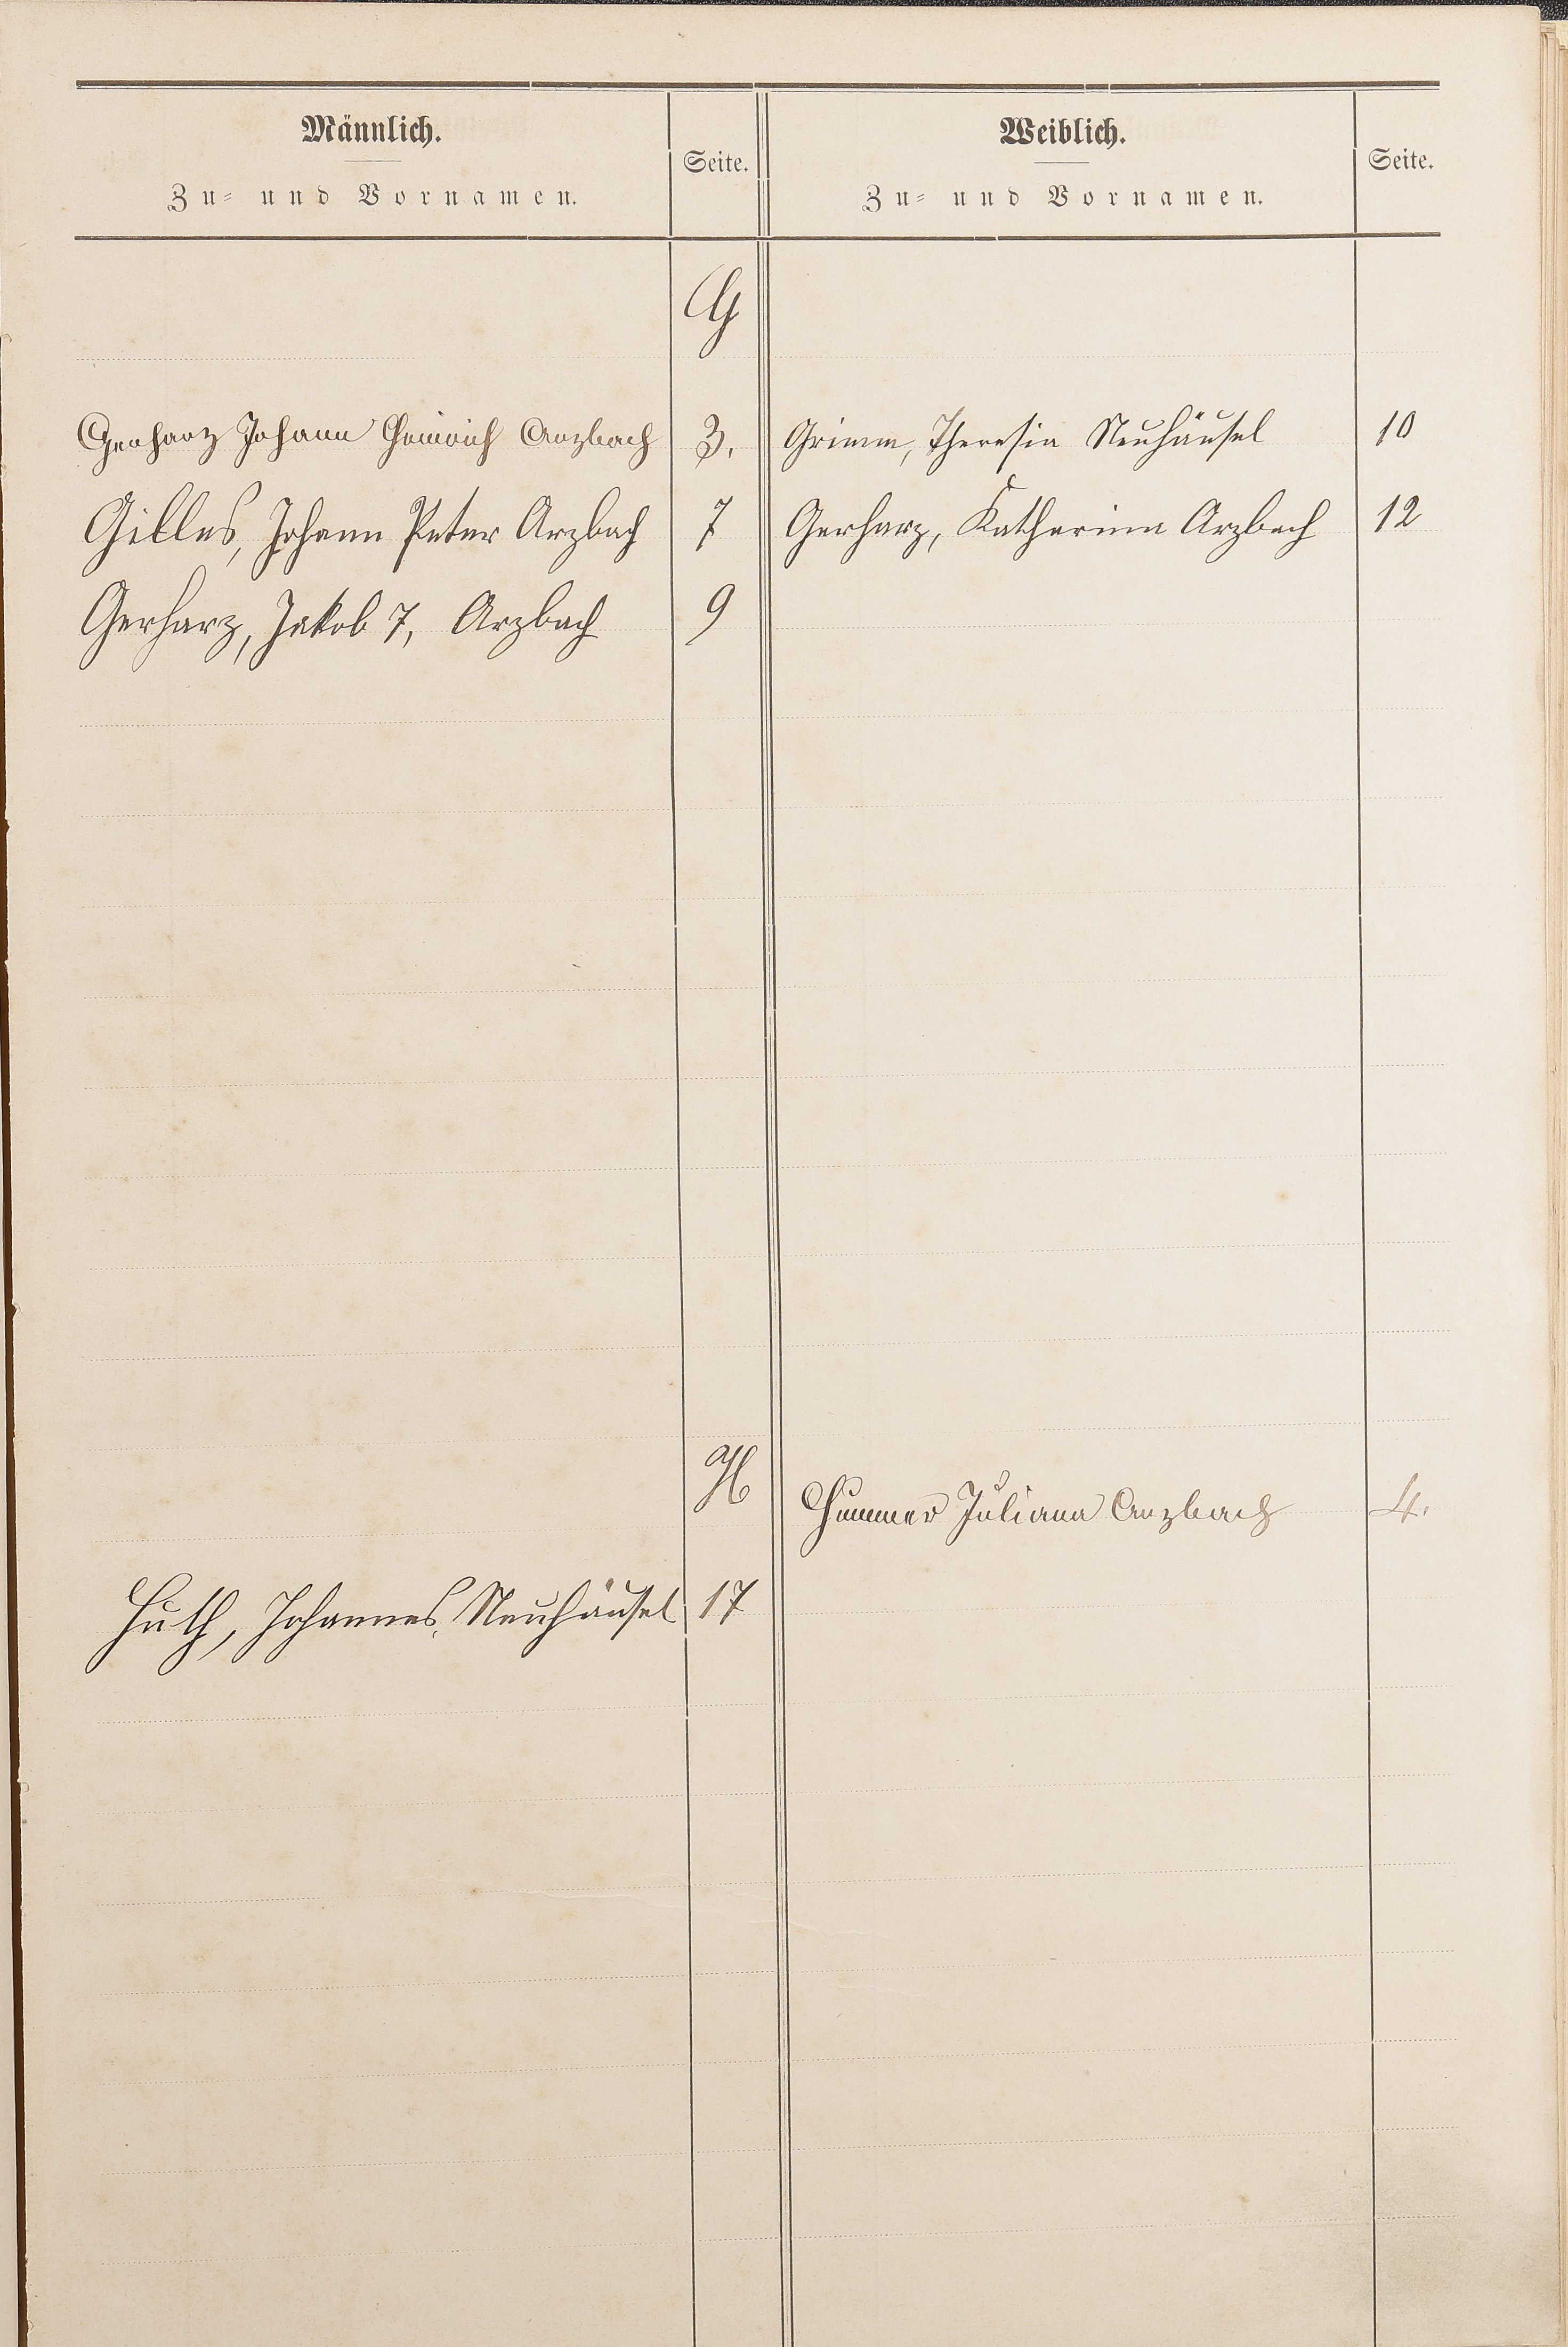 Männlich. Weiblich.
Seite. Seite.
Zu- und Vornamen. Zu- und Vornamen.
G
Gerharz Johann Heinrich Arzbach 3. Grimm, Theresia Neuhäusel 10
Gilles, Johann Peter Arzbach 7 Gerharz, Katharina Arzbach 12
Gerharz, Jakob 7, Arzbach 9
H
Hummer Juliana Arzbach 4.
Huth, Johannes, Neuhäusel 17